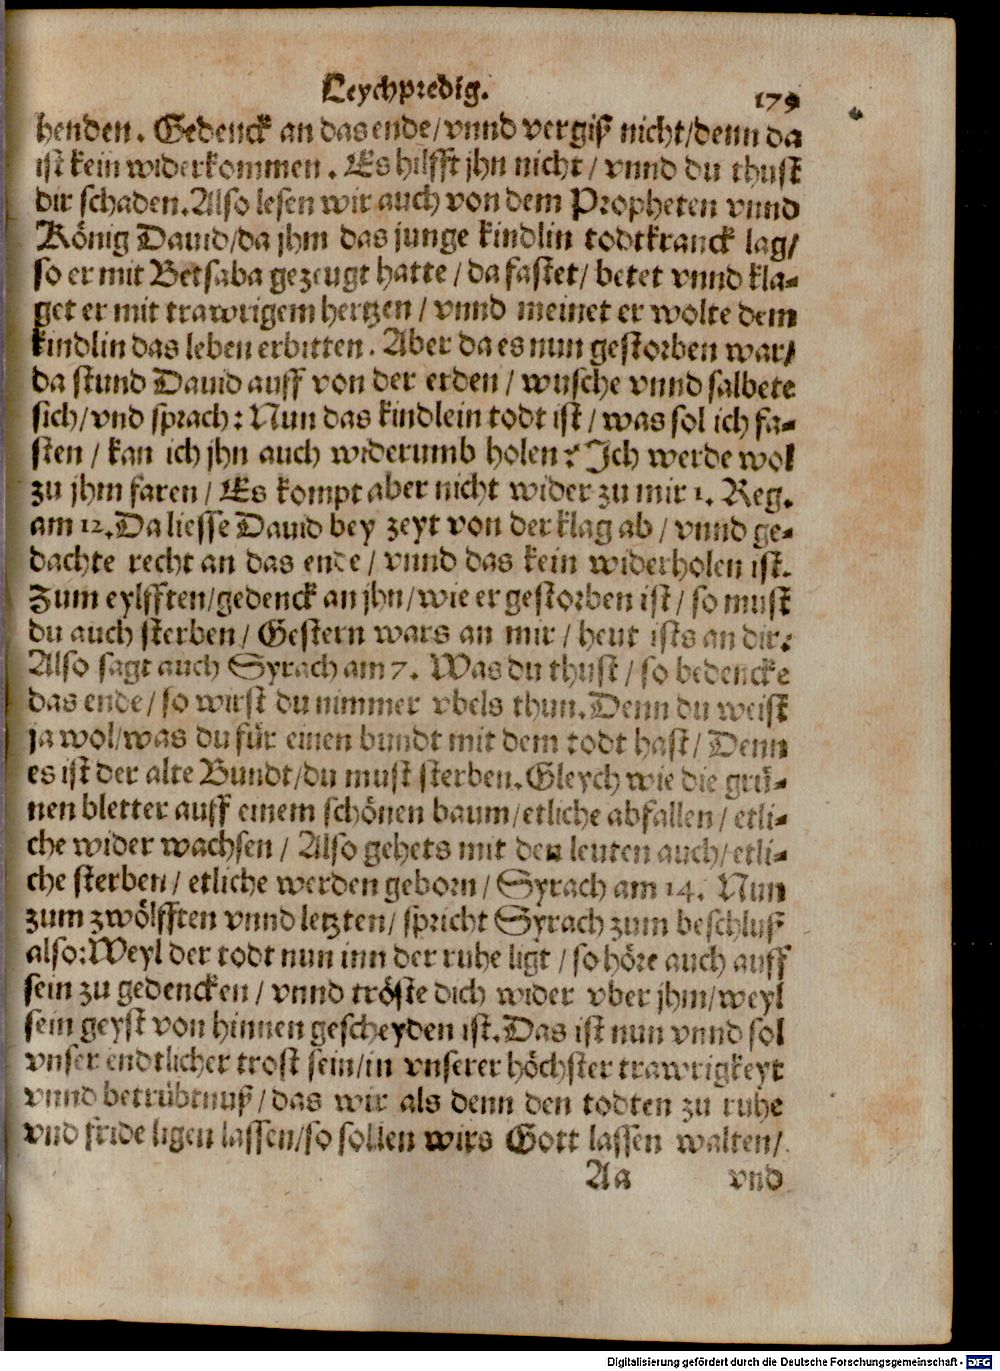 Leychpredig.
179
henden. Gedenck an das ende/vnnd vergiß nicht/denn da
ist kein widerkommen. Es hilfft jhn nicht/ vnnd du thust
dir schaden. Also lesen wir auch von dem Propheten vnnd
König Dauid/da jhm das junge kindlin todtkranck lag/
so er mit Betsaba gezeugt hatte/ da fastet/ betet vnnd kla-
get er mit trawrigem hertzen/ vnnd meinet er wolte dem
kindlin das leben erbitten. Aber da es nun gestorben war/
da stund Dauid auff von der erden/ wusche vnnd salbete
sich/vnd sprach: Nun das kindlein todt ist/ was sol ich fa-
sten/ kan ich jhn auch widerumb holen? Ich werde wol
zu jhm faren/ Es kompt aber nicht wider zu mir 1. Reg.
am 12. Da liesse Dauid bey zeyt von der klag ab/ vnnd ge-
dachte recht an das ende/ vnnd das kein widerholen ist.
Zum eylfften/gedenck an jhn/wie er gestorben ist/ so must
du auch sterben/ Gestern wars an mir/ heut ists an dir:
Also sagt auch Syrach am 7. Was du thust/ so bedencke
das ende/ so wirst du nimmer vbels thun. Denn du weist
ja wol/was du für einen bundt mit dem todt hast/ Denn
es ist der alte Bundt/du must sterben. Gleych wie die grü-
nen bletter auff einem schönen baum/etliche abfallen/ etli-
che wider wachsen/ Also gehets mit den leuten auch/ etli-
che sterben/ etliche werden geborn/ Syrach am 14. Nun
zum zwölfften vnnd letzten/ spricht Syrach zum beschluß
also: Weyl der todt nun inn der ruhe ligt/ so höre auch auff
sein zu gedencken/ vnnd tröste dich wider vber jhm/weyl
sein geyst von hinnen gescheyden ist. Das ist nun vnnd sol
vnser endtlicher trost sein/in vnserer höchster trawrigkeyt
vnnd betrübtnuß/ das wir als denn den todten zu ruhe
vnd fride ligen lassen/so sollen wirs Gott lassen walten/
Aa vnd
Digitalisierung gefördert durch die Deutsche Forschungsgemeinschaft - DFG